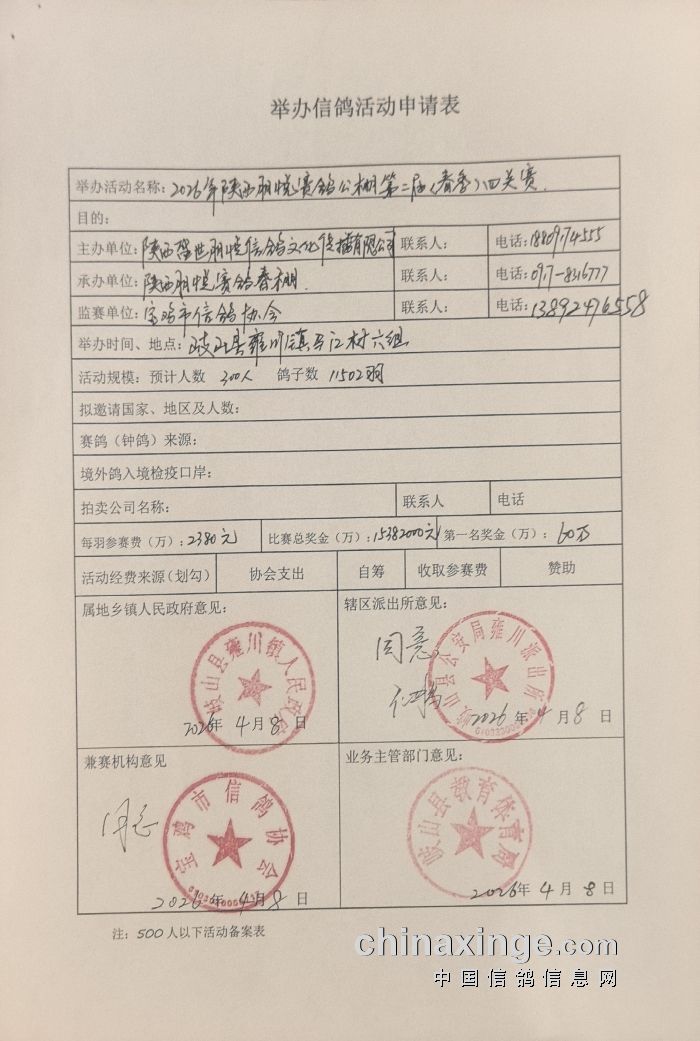 举办信鸽活动申请表
举办活动名称：2026年陕西翊悦赛鸽公棚第二届（春季）四关赛
目的：
主办单位：陕西盛世翊悦信鸽文化传播有限公司 联系人： 电话：18809174555
承办单位：陕西翊悦赛鸽春棚 联系人： 电话：0917-8316777
监赛单位：宝鸡市信鸽协会 联系人： 电话：13892476558
举办时间、地点：岐山县雍川镇马江村六组
活动规模：预计人数 300人 鸽子数 11502羽
拟邀请国家、地区及人数：
赛鸽（钟鸽）来源：
境外鸽入境检疫口岸：
拍卖公司名称： 联系人 电话
每羽参赛费（万）：2380元 比赛总奖金（万）：15382000元 第一名奖金（万）：60万
活动经费来源（划勾） 协会支出 自筹 收取参赛费 赞助
属地乡镇人民政府意见： 辖区派出所意见：
岐山县雍川镇人民政府 同意 岐山县公安局雍川派出所
2026年4月8日 2026年4月8日
兼赛机构意见 业务主管部门意见：
同意 宝鸡市信鸽协会 岐山县教育体育局
2026年4月8日 2026年4月8日
注：500人以下活动备案表
chinaxinge.com
中国信鸽信息网